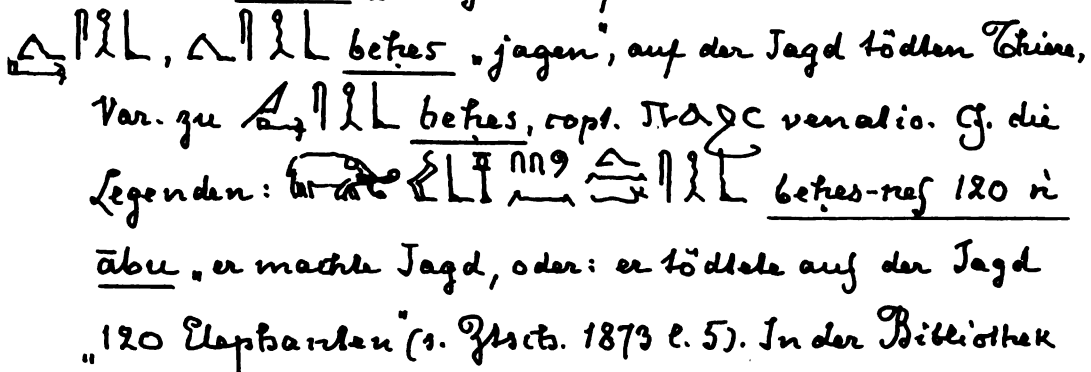 , beḥes „jagen“, auf der Jagd tödten Thiere,
Var. zu beḥes, copt. ⲡⲁϩⲥ venatio. Cf. die
Legenden: beḥes-nef 120 n
ābu „er machte Jagd, oder: er tödtete auf der Jagd
„120 Elephanten“ (s. Ztsch. 1873 l. 5). In der Bibliothek